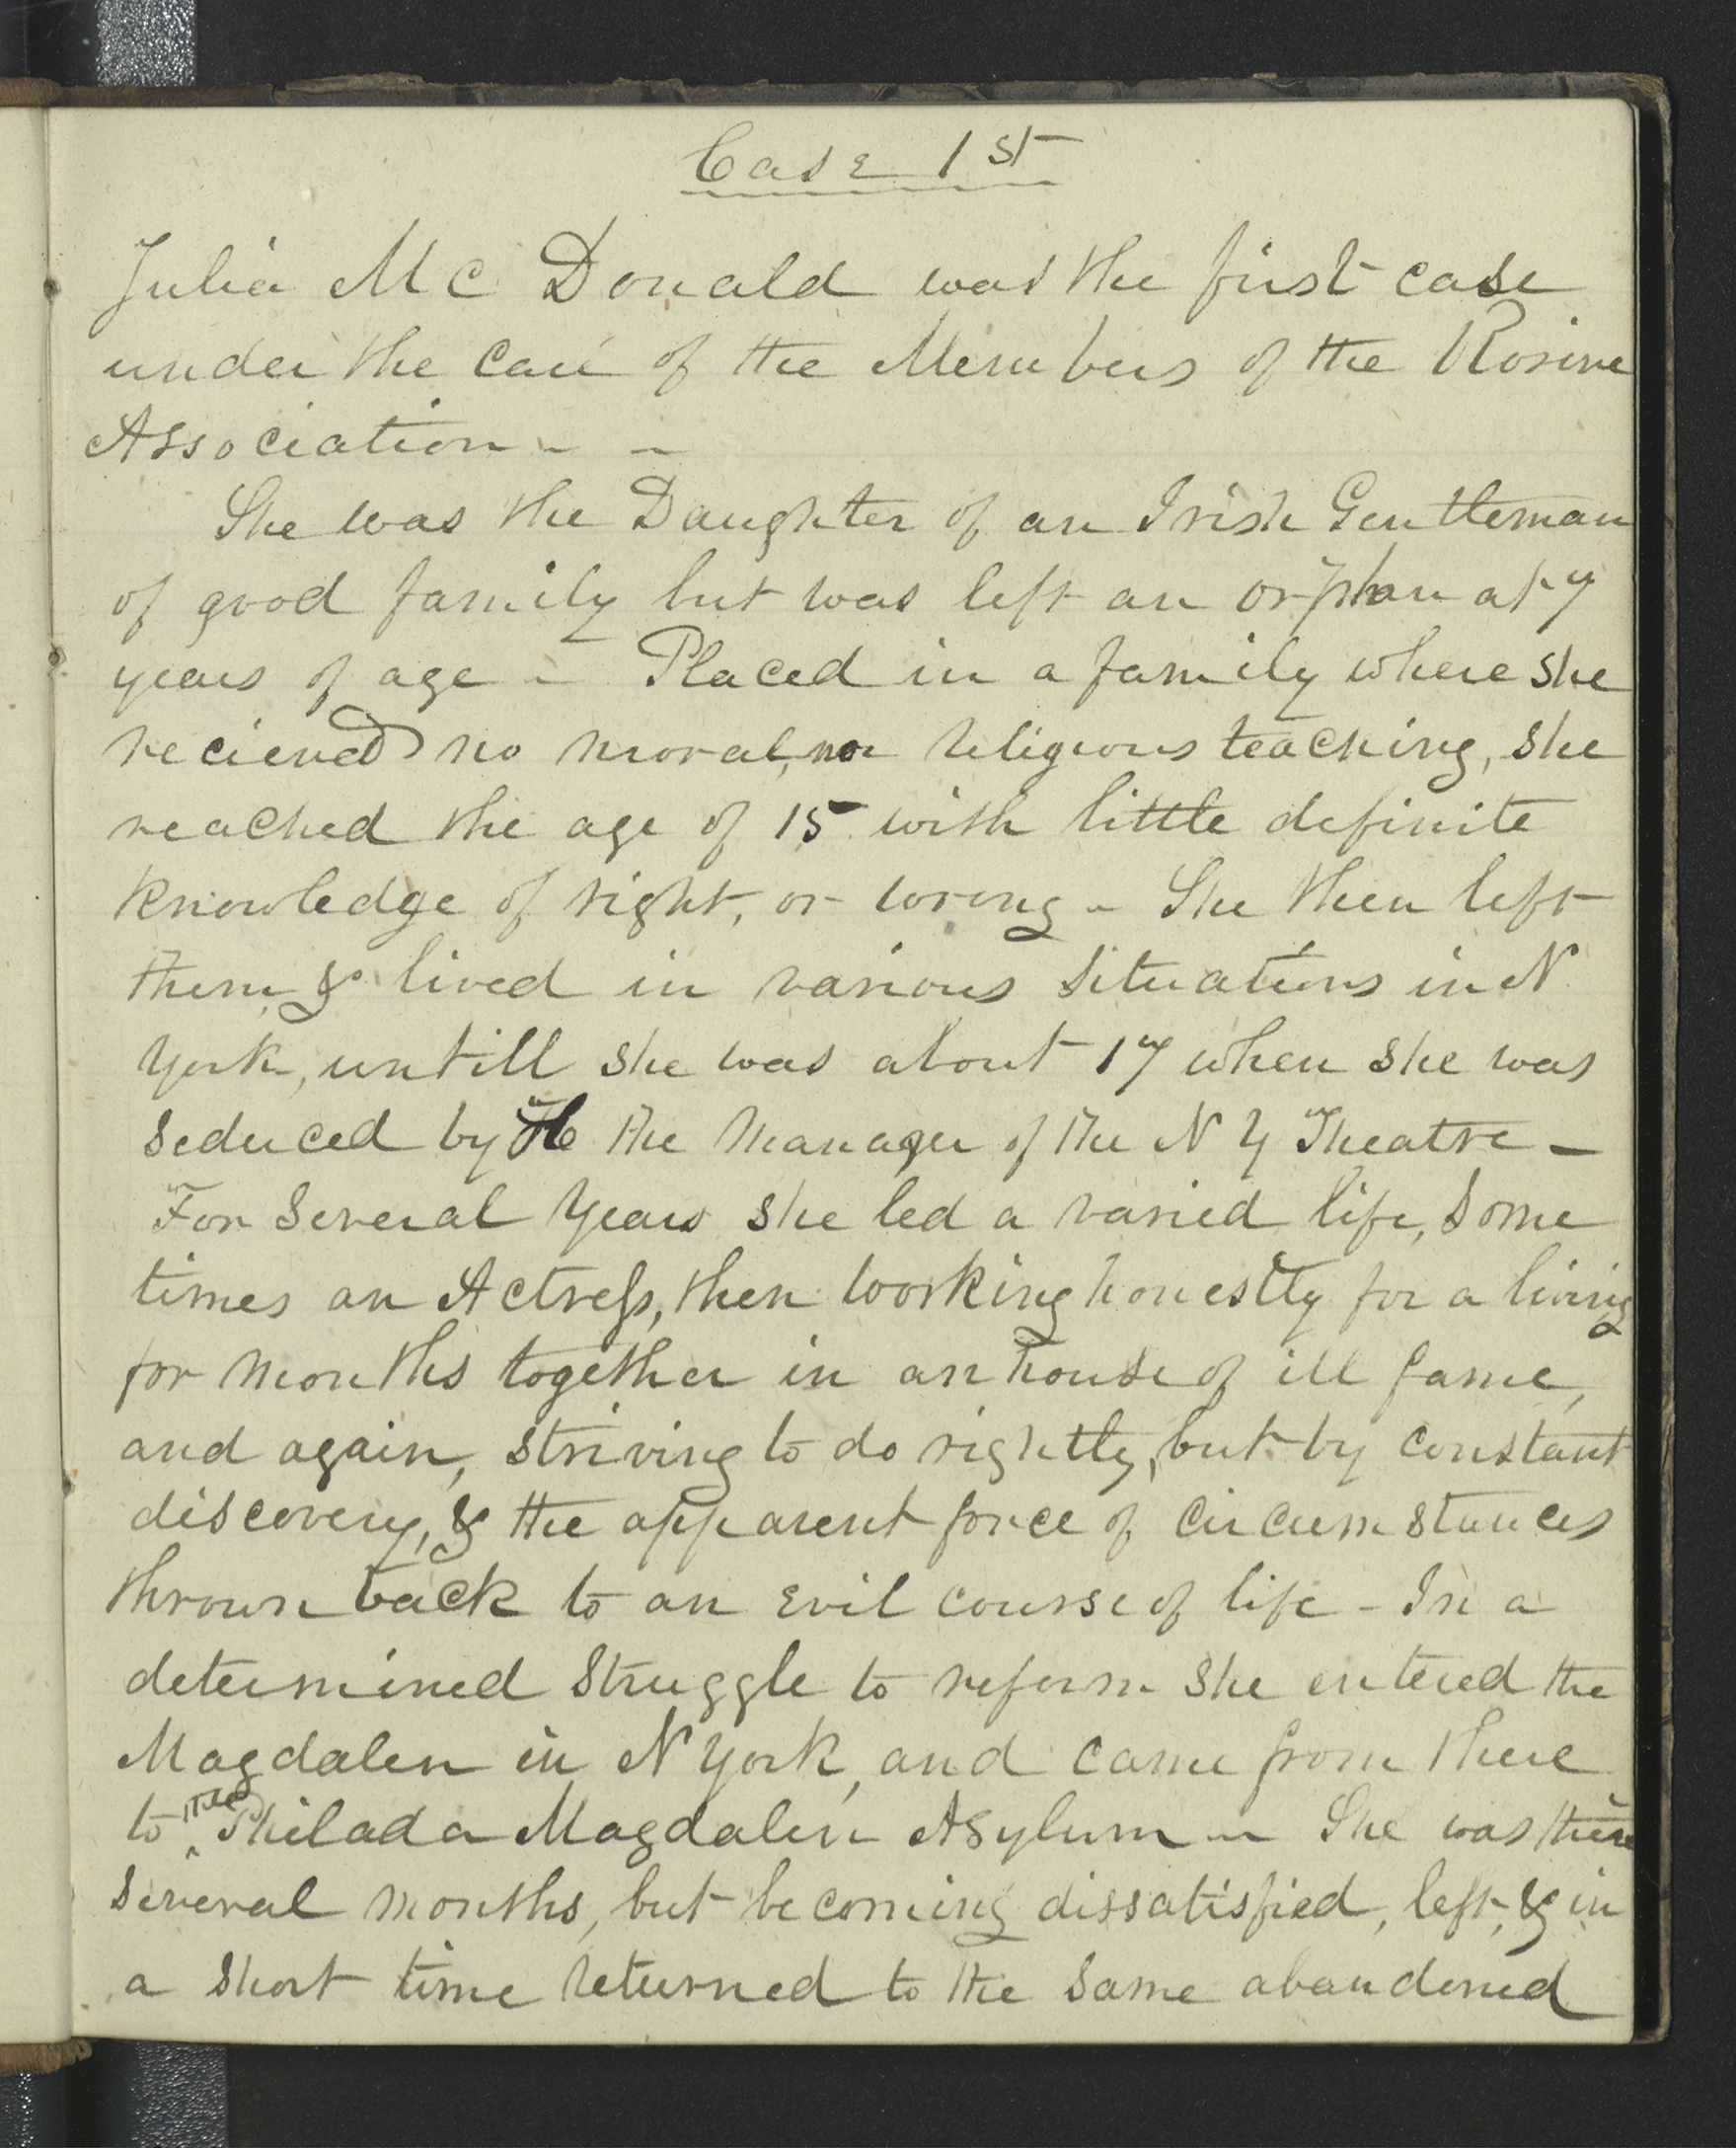 Case 1st
Julia Mc Donald was the first case
under the care of the Members of the Rosine
Association - -
She was the Daughter of an Irish Gentleman
of good family but was left an orphan at 7
years of age - Placed in a family where she
recieved no moral, nor religious teaching, she
reached the age of 15 with little definite
knowledge of right, or wrong - She then left
them, & lived in various situations in N
York, untill she was about 17 when she was
seduced by the manager of the N Y Theatre -
For several years she led a varied life, some
times an Actress, then working honestly for a living
for months together in an house of ill fame,
and again, striving to do rightly, but by constant
discovery, & the apparent force of circumstances
thrown back to an evil course of life - In a
determined struggle to reform she entered the
Magdalen in N York, and came from there
to the Philada Magdalen Asylum - She was there
several months, but becoming dissatisfied, left, & in
a short time returned to the same abandoned